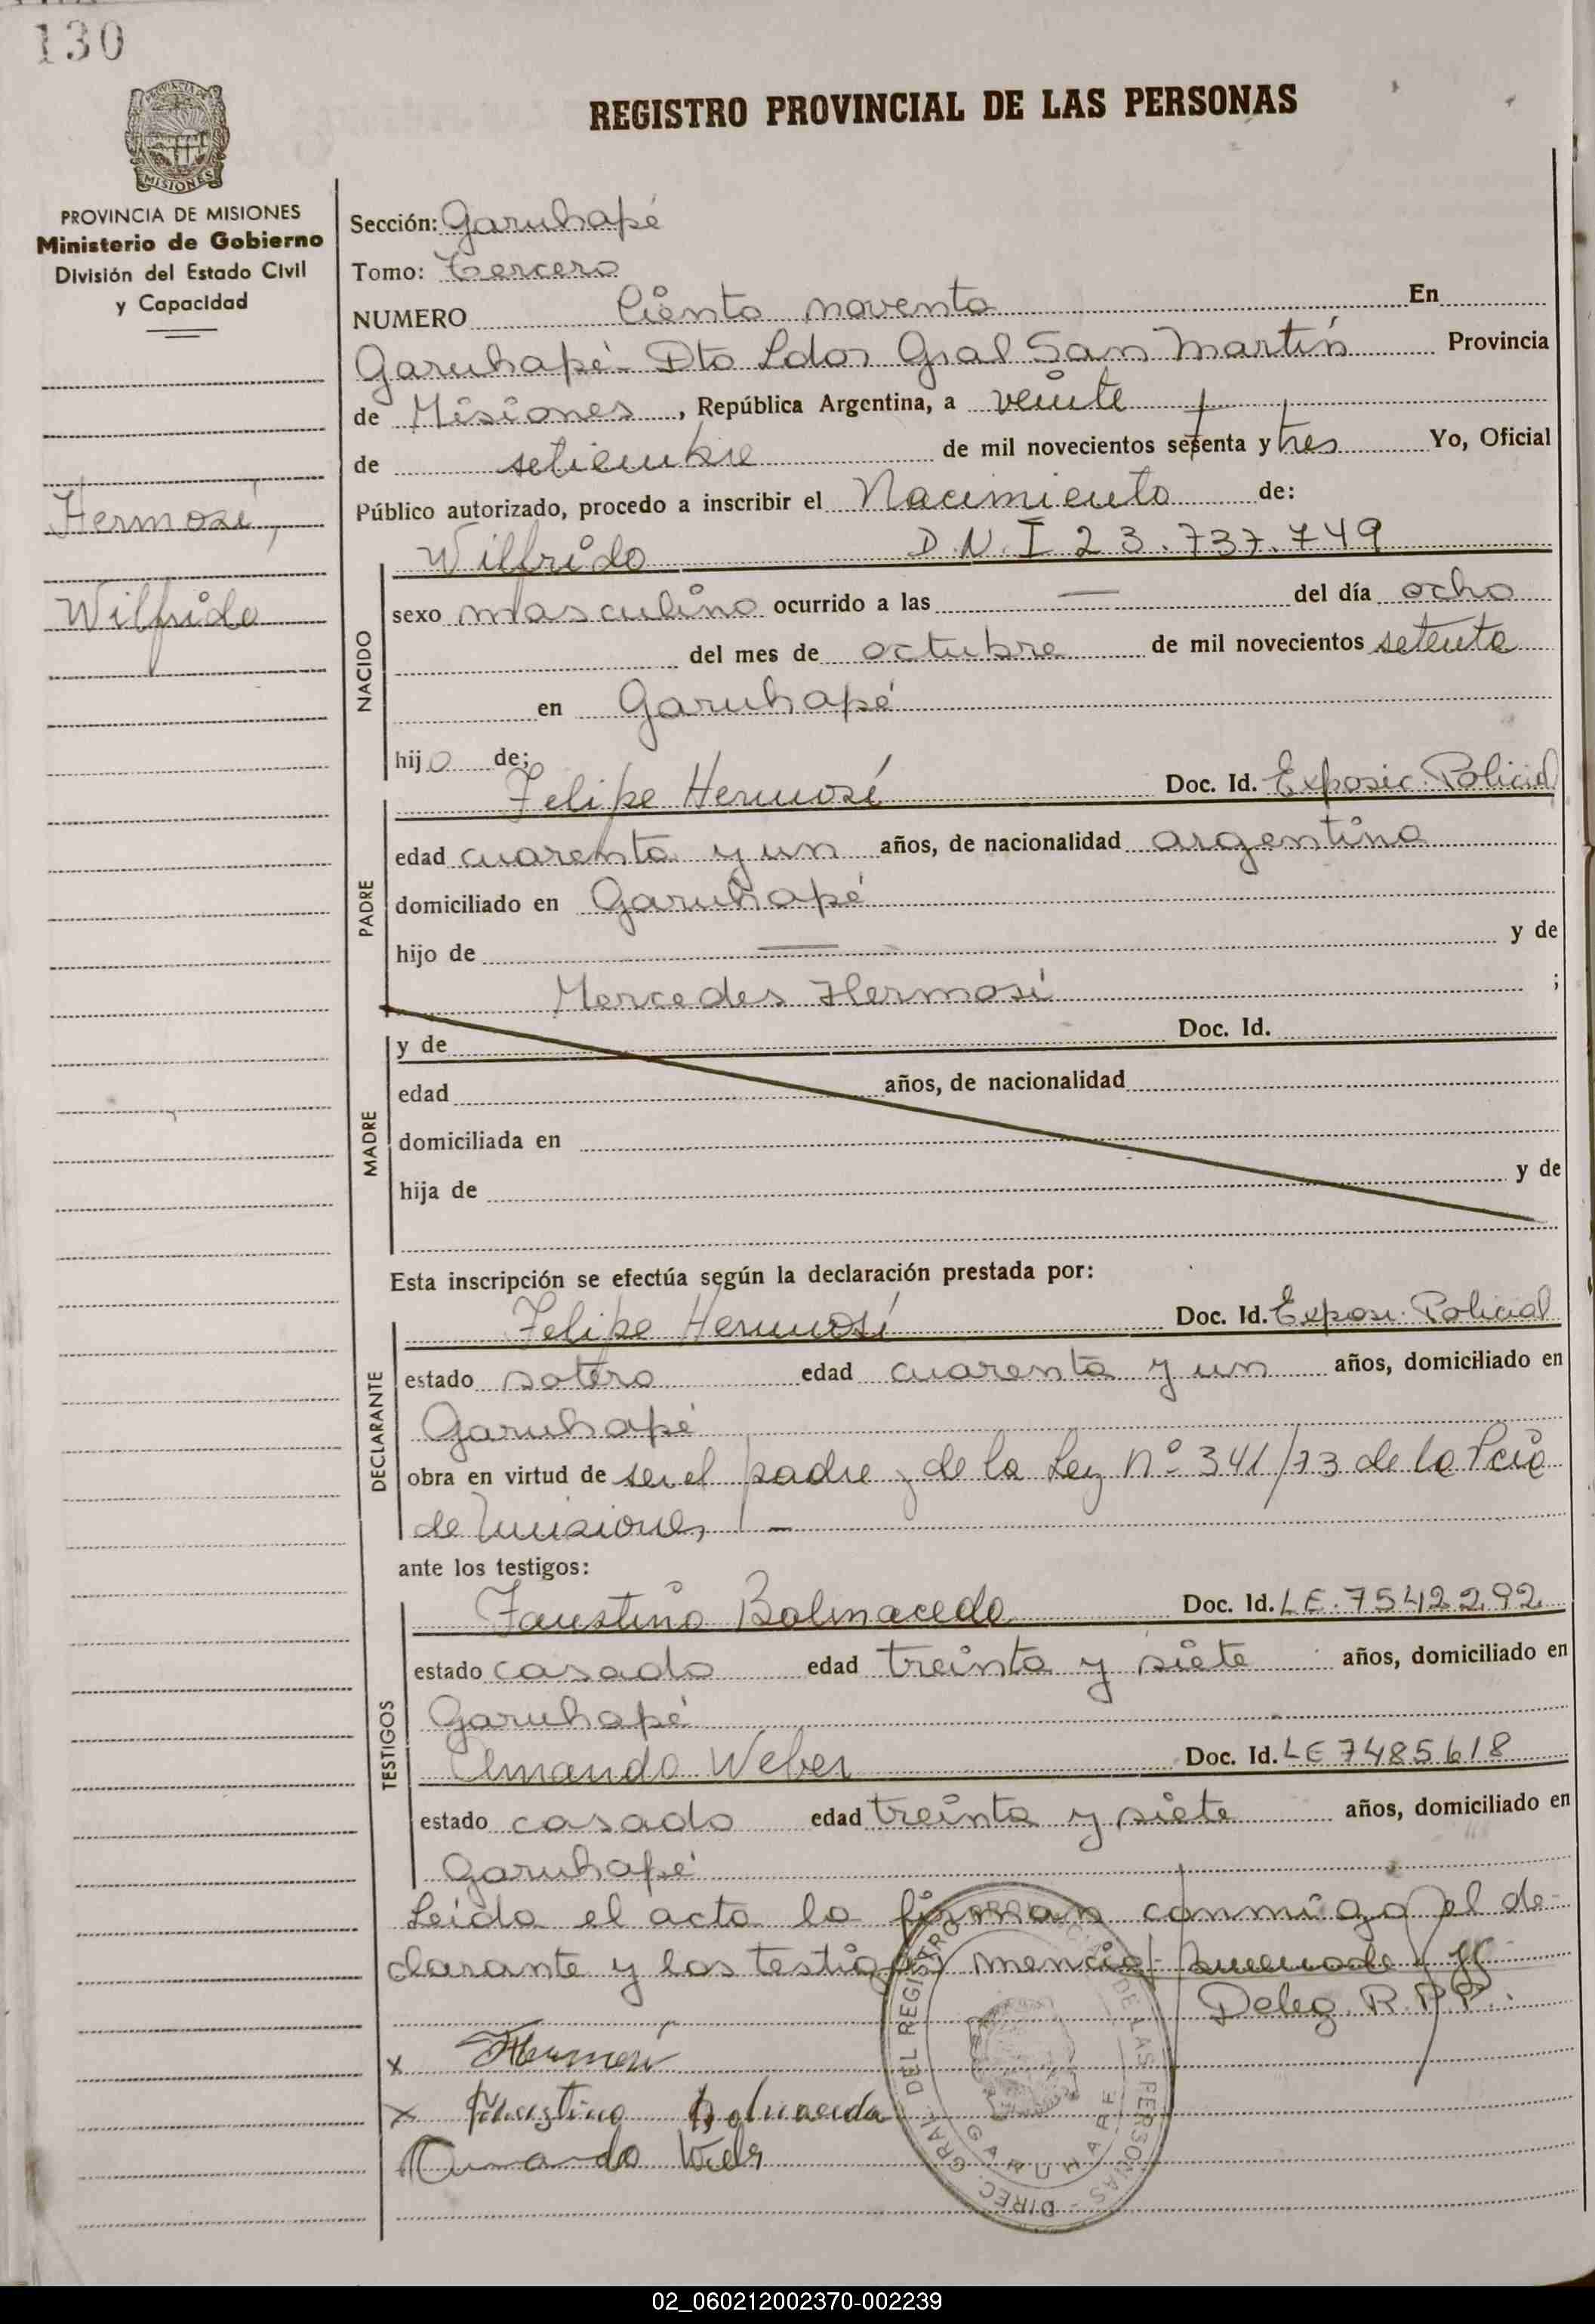 130
REGISTRO PROVINCIAL DE LAS PERSONAS
PROVINCIA DE MISIONES
MISIONES
PROVINCIA DE MISIONES
Ministerio de Gobierno
División del Estado Civil
y Capacidad
Hermosí,
Wilfrido
Sección: Garuhapé
Tomo: Tercero
NUMERO Ciento noventa En
Garuhapé - Dto Ldor Gral San Martín Provincia
de Misiones, República Argentina, a veinte
de setiembre de mil novecientos setenta y tres Yo, Oficial
Público autorizado, procedo a inscribir el Nacimiento de:
Wilfrido D.N.I 23.737.749
NACIDO
sexo masculino ocurrido a las — del día ocho
del mes de octubre de mil novecientos setenta
en Garuhapé
hijo de;
Felipe Hermosí Doc. Id. Exposic. Policial
PADRE
edad cuarenta y un años, de nacionalidad argentina
domiciliado en Garuhapé
hijo de — y de
Mercedes Hermosí ;
MADRE
y de Doc. Id.
edad años, de nacionalidad
domiciliada en
hija de y de
Esta inscripción se efectúa según la declaración prestada por:
Felipe Hermosí Doc. Id. Exposi. Policial
DECLARANTE
estado sotero edad cuarenta y un años, domiciliado en
Garuhapé
obra en virtud de ser el padre y de la Ley nº 341/73 de la Pcia
de Misiones, -
ante los testigos:
Faustino Balmaceda Doc. Id. LE. 7542292
TESTIGOS
estado casado edad treinta y siete años, domiciliado en
Garuhapé
Amando Weber Doc. Id. LE 7485618
estado casado edad treinta y siete años, domiciliado en
Garuhapé
Leida el acta la firman conmigo el de-
clarante y los testigos mencio
Deleg. R.P.P.
x Hermosi
x Faustino Balmaceda
Amando Weber
DIREC. GRAL. DEL REGISTRO PROVINCIAL DE LAS PERSONAS
GARUHAPE
02_060212002370-002239